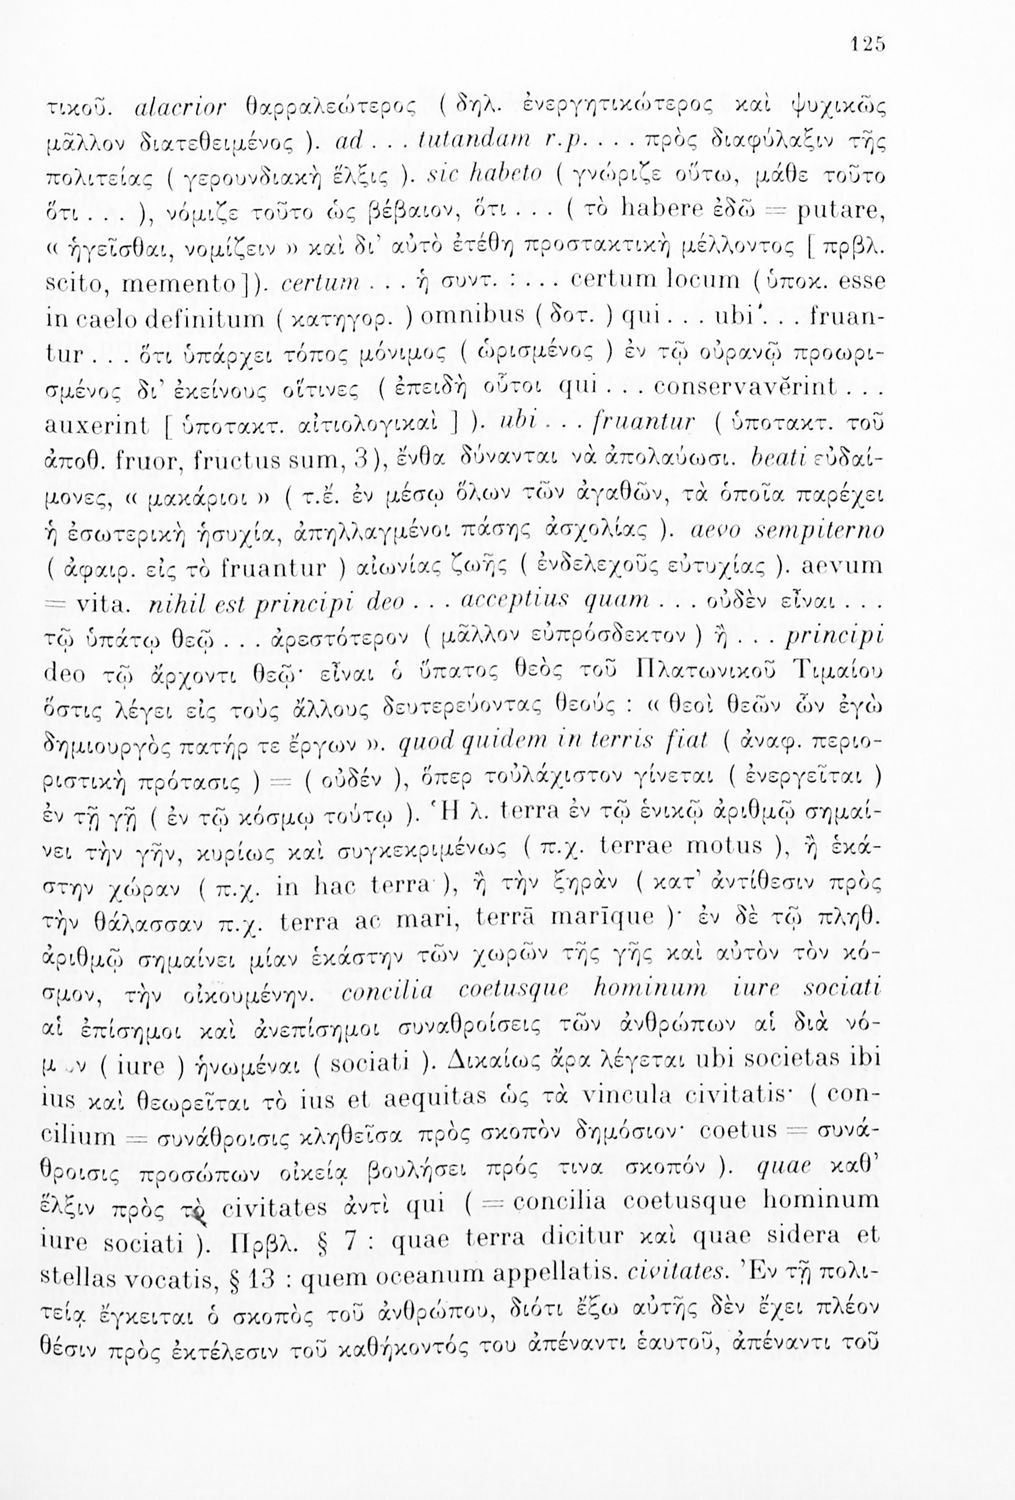 125
τικοῦ. alacrior θαρραλεώτερος ( δηλ. ἐνεργητικώτερος καὶ ψυχικῶς
μᾶλλον διατεθειμένος ). ad . . . tutandam r.p. . . . πρὸς διαφύλαξιν τῆς
πολιτείας ( γερουνδιακὴ ἕλξις ). sic habeto ( γνώριζε οὕτω, μάθε τοῦτο
ὅτι . . . ), νόμιζε τοῦτο ὡς βέβαιον, ὅτι . . . ( τὸ habere ἐδῶ = putare,
« ἡγεῖσθαι, νομίζειν » καὶ δι’ αὐτὸ ἐτέθη προστακτικὴ μέλλοντος [ πρβλ.
scito, memento ]). certum . . . ἡ συντ. : . . . certum locum ( ὑποκ. esse
in caelo definitum ( κατηγορ. ) omnibus ( δοτ. ) qui . . . ubi . . . fruan-
tur . . . ὅτι ὑπάρχει τόπος μόνιμος ( ὡρισμένος ) ἐν τῷ οὐρανῷ προωρι-
σμένος δι’ ἐκείνους οἵτινες ( ἐπειδὴ οὗτοι qui . . . conservavĕrint . . .
auxerint [ ὑποτακτ. αἰτιολογικαὶ ] ). ubi . . . fruantur ( ὑποτακτ. τοῦ
ἀποθ. fruor, fructus sum, 3), ἔνθα δύνανται νὰ ἀπολαύωσι. beati εὐδαί-
μονες, « μακάριοι » ( τ.ἔ. ἐν μέσῳ ὅλων τῶν ἀγαθῶν, τὰ ὁποῖα παρέχει
ἡ ἐσωτερικὴ ἡσυχία, ἀπηλλαγμένοι πάσης ἀσχολίας ). aevo sempiterno
( ἀφαιρ. εἰς τὸ fruantur ) αἰωνίας ζωῆς ( ἐνδελεχοῦς εὐτυχίας ). aevum
= vita. nihil est principi deo . . . acceptius quam . . . οὐδὲν εἶναι . . .
τῷ ὑπάτῳ θεῷ . . . ἀρεστότερον ( μᾶλλον εὐπρόσδεκτον ) ἢ . . . principi
deo τῷ ἄρχοντι θεῷ· εἶναι ὁ ὕπατος θεὸς τοῦ Πλατωνικοῦ Τιμαίου
ὅστις λέγει εἰς τοὺς ἄλλους δευτερεύοντας θεούς : « θεοὶ θεῶν ὧν ἐγὼ
δημιουργὸς πατήρ τε ἔργων ». quod quidem in terris fiat ( ἀναφ. περιο-
ριστικὴ πρότασις ) = ( οὐδέν ), ὅπερ τοὐλάχιστον γίνεται ( ἐνεργεῖται )
ἐν τῇ γῇ ( ἐν τῷ κόσμῳ τούτῳ ). Ἡ λ. terra ἐν τῷ ἑνικῷ ἀριθμῷ σημαί-
νει τὴν γῆν, κυρίως καὶ συγκεκριμένως ( π.χ. terrae motus ), ἢ ἑκά-
στην χώραν ( π.χ. in hac terra ), ἢ τὴν ξηρὰν ( κατ’ ἀντίθεσιν πρὸς
τὴν θάλασσαν π.χ. terra ac mari, terrā marīque )· ἐν δὲ τῷ πληθ.
ἀριθμῷ σημαίνει μίαν ἑκάστην τῶν χωρῶν τῆς γῆς καὶ αὐτὸν τὸν κό-
σμον, τὴν οἰκουμένην. concilia coetusque hominum iure sociati
αἱ ἐπίσημοι καὶ ἀνεπίσημοι συναθροίσεις τῶν ἀνθρώπων αἱ διὰ νό-
( iure ) ἡνωμέναι ( sociati ). Δικαίως ἄρα λέγεται ubi societas ibi
ius καὶ θεωρεῖται τὸ ius et aequitas ὡς τὰ vincula civitatis· ( con-
cilium = συνάθροισις κληθεῖσα πρὸς σκοπὸν δημόσιον· coetus = συνά-
θροισις προσώπων οἰκείᾳ βουλήσει πρός τινα σκοπόν ). quae καθ’
ἕλξιν πρὸς τὸ civitates ἀντὶ qui ( = concilia coetusque hominum
iure sociati ). Πρβλ. § 7 : quae terra dicitur καὶ quae sidera et
stellas vocatis, § 13 : quem oceanum appellatis. civitates. Ἐν τῇ πολι-
τείᾳ ἔγκειται ὁ σκοπὸς τοῦ ἀνθρώπου, διότι ἔξω αὐτῆς δὲν ἔχει πλέον
θέσιν πρὸς ἐκτέλεσιν τοῦ καθήκοντός του ἀπέναντι ἑαυτοῦ, ἀπέναντι τοῦ